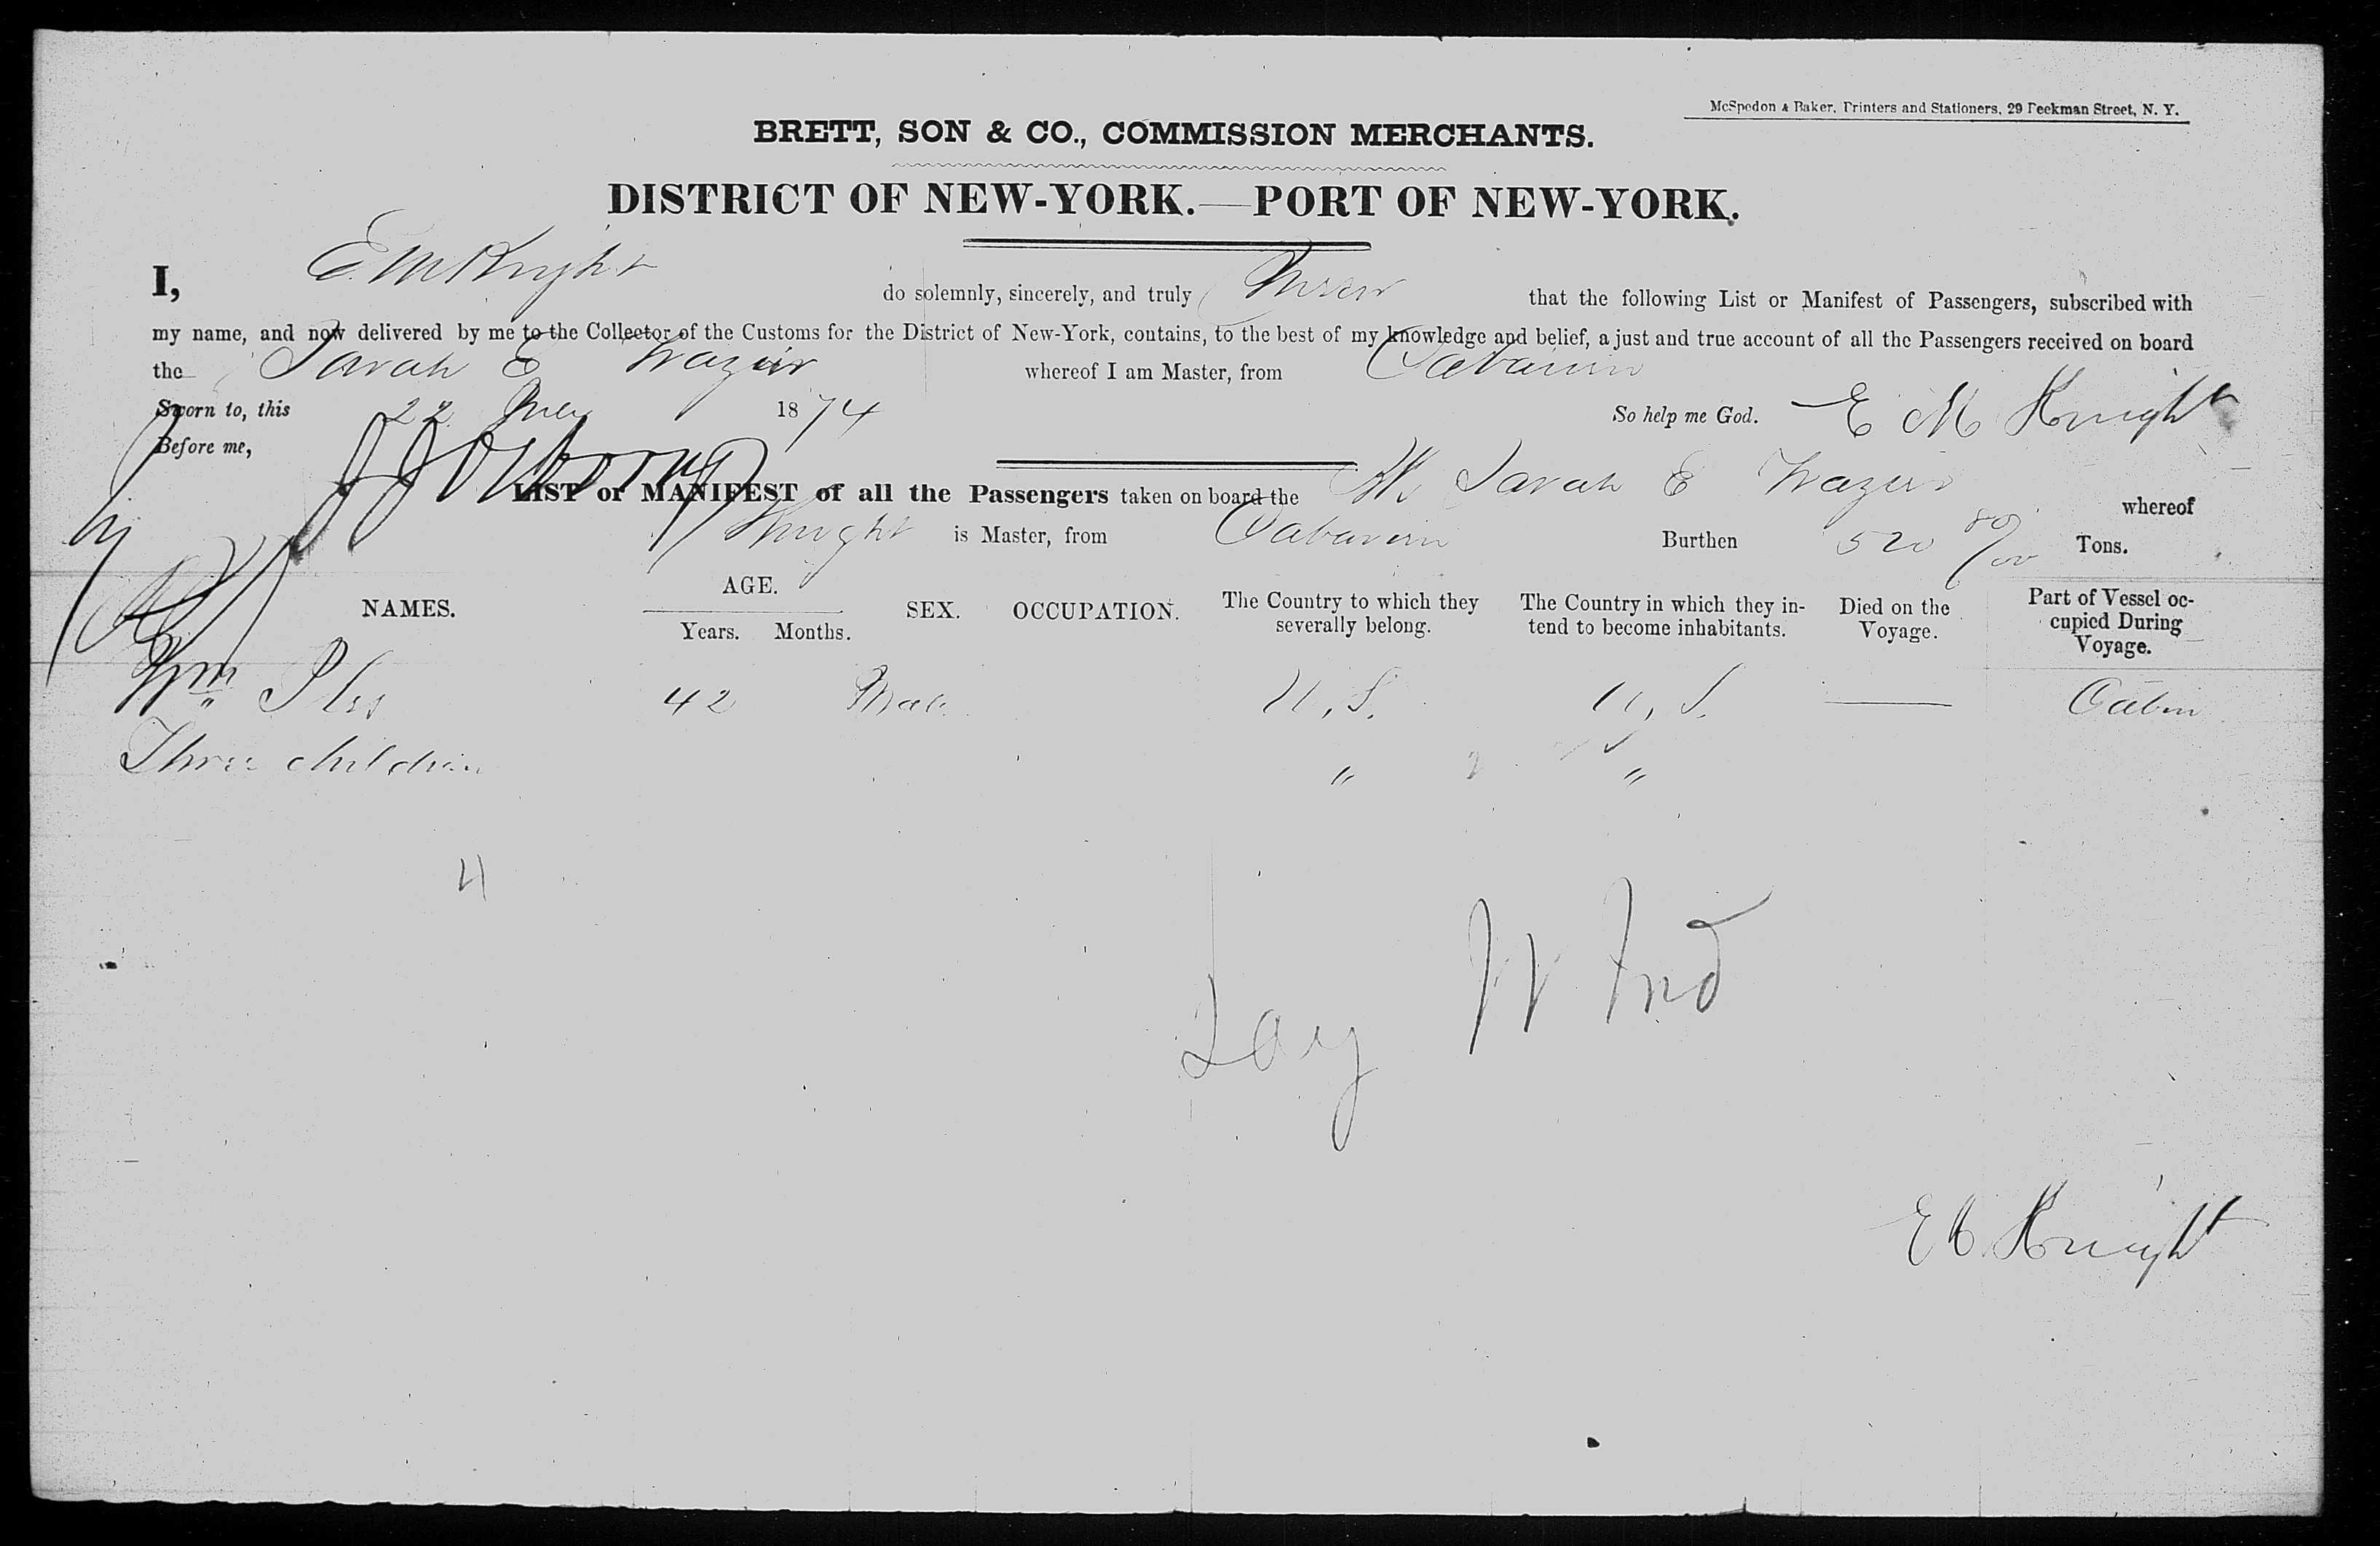 McSpedon & Baker, Printers and Stationers, 29 Beekman Street, N. Y.
BRETT, SON & CO., COMMISSION MERCHANTS.
DISTRICT OF NEW-YORK.—PORT OF NEW-YORK.
I, E. M Knight do solemnly, sincerely, and truly Swear that the following List or Manifest of Passengers, subscribed with
my name, and now delivered by me to the Collector of the Customs for the District of New-York, contains, to the best of my knowledge and belief, a just and true account of all the Passengers received on board
the Sarah E Frazier whereof I am Master, from Cabarien
Sworn to, this 22 1874 So help me God. E M Knight
Before me,
LIST or MANIFEST of all the Passengers taken on board the Sarah E Frazier whereof
Knight is Master, from Cabarien Burthen 520 80/100 Tons.
NAMES. AGE. Years. Months. SEX. OCCUPATION. The Country to which they severally belong. The Country in which they intend to become inhabitants. Died on the Voyage. Part of Vessel occupied During Voyage.
Wm 42 Male U.S. U.S. — Cabin
Three children " "
4
W Ind
E Knight